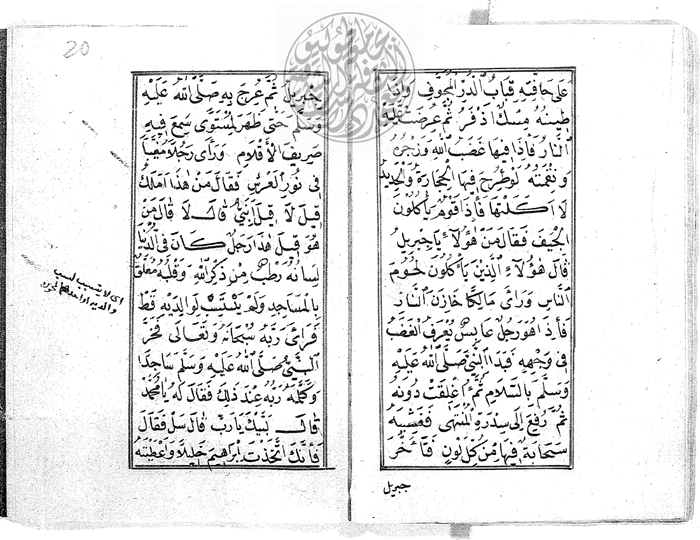 على حافته قباب الدر المجوف واذا
طينه مسك اذفر ثم عرضت عليه
النار فاذا فيها غضب الله وزجره
ونقمته لو طرح فيها الحجارة والحديد
لاكلتها فاذا قوم ياكلون
الجيف فقال من هؤلاء ياجبريل
قال هؤلاء الذين ياكلون لحوم
الناس وراى مالكا خازن النار
فاذا هو رجل عابس يعرف الغضب
في وجهه فبدا النبي صلى الله عليه
وسلم بالسلام ثم اغلقت دونه
ثم رفع الى سدرة المنتهى فغشيه
سحابة فيها من كل لون فتاخر
جبريل
20
جبريل ثم عرج به صلى الله عليه
وسلم حتى ظهر لمستوى سمع فيه
صريف الاقلام وراى رجلا مغيبا
في نور العرش فقال من هذا املك
قيل لا قيل انبي قال لا قال من
هو قيل هذا رجل كان في الدنيا
لسانه رطب من ذكر الله وقلبه معلق
بالمساجد ولم يستسب لوالديه قط
فراى ربه سبحانه وتعالى فخر
النبي صلى الله عليه وسلم ساجدا
وكلمه ربه عند ذلك فقال له يا محمد
قال لبيك يارب قال سل فقال
فانك اتخذت ابراهيم خليلا واعطيته
اى لا تسبب لسب
والديه او احدهما